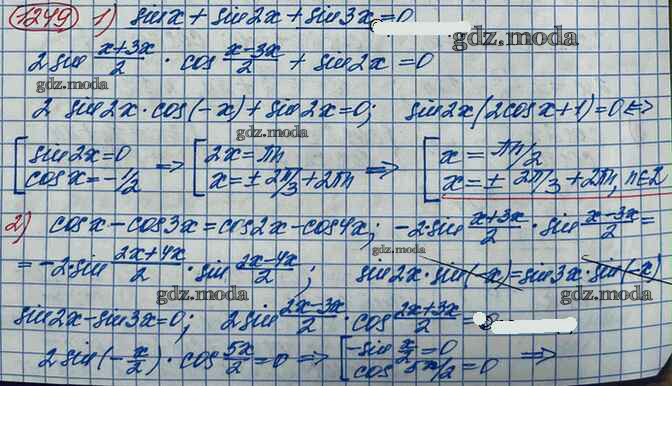 1249 1) sinx + sin2x + sin3x = 0
gdz.moda
2 sin (x+3x)/2 · cos (x-3x)/2 + sin2x = 0
gdz.moda
2 sin2x · cos(-x) + sin2x = 0; sin2x(2cosx+1) = 0 <=>
gdz.moda
[ sin2x = 0 => [ 2x = πn => [ x = πn/2
cosx = -1/2 x = ± 2π/3 + 2πn x = ± 2π/3 + 2πn, n∈Z
2) cosx - cos3x = cos2x - cos4x; -2·sin (x+3x)/2 · sin (x-3x)/2 =
gdz.moda
= -2 sin (2x+4x)/2 · sin (2x-4x)/2; sin2x · sin(-x) = sin3x · sin(-x)
gdz.moda gdz.moda
sin2x - sin3x = 0; 2 sin (2x-3x)/2 · cos (2x+3x)/2 =
2 sin(-x/2) · cos 5x/2 = 0 => [ -sin x/2 = 0 =>
gdz.moda
cos 5x/2 = 0
gdz.moda